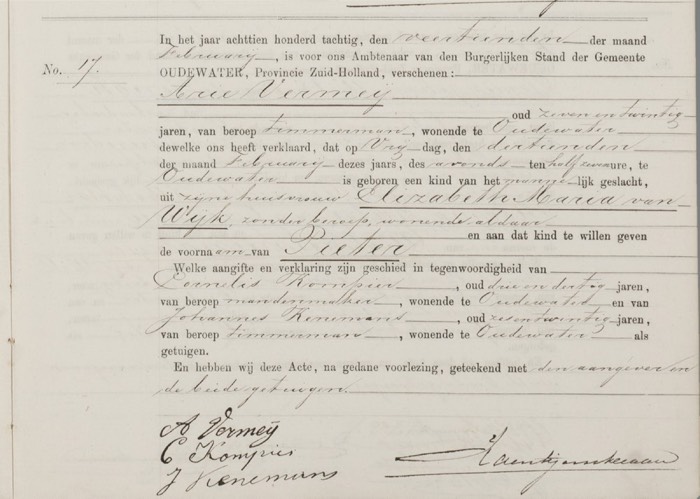 No. 17.
In het jaar achttien honderd tachtig, den veertienden der maand
February, is voor ons Ambtenaar van den Burgerlijken Stand der Gemeente
OUDEWATER, Provincie Zuid-Holland, verschenen:
Arie Vermeij
oud zeven en twintig
jaren, van beroep timmerman, wonende te Oudewater
dewelke ons heeft verklaard, dat op Vrydag, den dertienden
der maand February dezes jaars, des avonds ten half zes ure, te
Oudewater is geboren een kind van het mannelijk geslacht,
uit zijne huisvrouw Elizabeth Maria van
Wijk, zonder beroep, wonende aldaar
en aan dat kind te willen geven
de voornaam van Pieter
Welke aangifte en verklaring zijn geschied in tegenwoordigheid van
Cornelis Kompier, oud drie en dertig jaren,
van beroep mandenmaker, wonende te Oudewater en van
Johannes Kenemans, oud zes en twintig jaren,
van beroep timmerman, wonende te Oudewater als
getuigen.
En hebben wij deze Acte, na gedane voorlezing, geteekend met den aangever en
de beide getuigen.
A Vermeij
C Kompier
J Kenemans